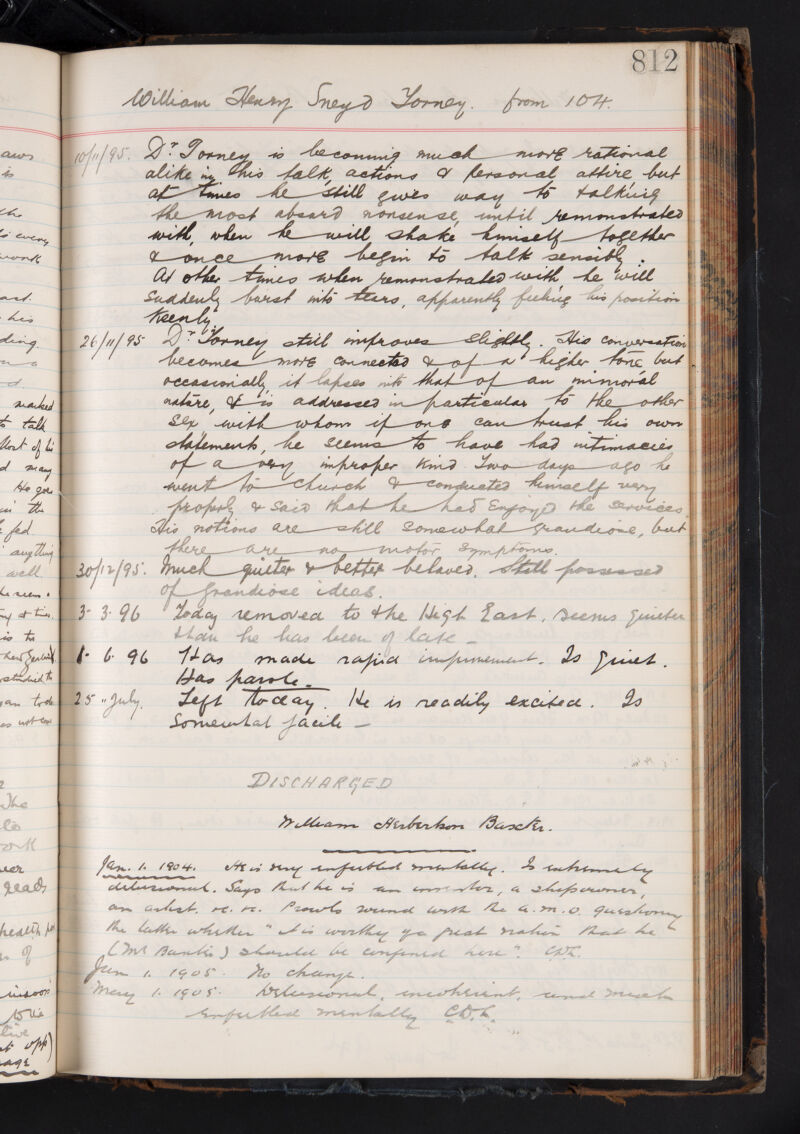 812
William Henry Sneyd Torney. from 104.
10/11/95. Dr Torney is becoming much more rational
alike in his talk, actions & Personal attire but
at times he still gives way to talking
the most absurd nonsense, until remonstrated
with, when he will shake himself together
& once more begin to talk sensibly.
At other times when remonstrated with he will
suddenly burst into tears, apparently feeling his position
keenly.
26/11/95 Dr Torney still improves slightly. His conversation
becomes more connected & of a higher tone but
occasionally it lapses into that of an immoral
nature, & is addressed in particular to the other
sex with whom if one can trust his own
statements, he seems to have had intimacies
of a very improper kind Two days ago he
went to church & conducted himself very
properly & said that he had Enjoyed the services.
His notions are still somewhat grandiose, but
there are no motor symptoms.
30/12/95. Much quieter & better behaved. Still possessed
of grandiose ideas.
3. 3. 96 Today removed to the High East. seems quieter
than he has been of late —
1. 6. 96 Has made rapid improvement. Is quiet.
Has parole.
25 " July. Left today. He is readily excited. Is
somewhat facile —
DISCHARGED
William Herbertson Baxter.
Jan. 1. 1904. He is very enfeebled mentally. Is extremely
delusional. Says that he is an inventor, a shipowner,
an artist, &c. &c. Prowls round with the A.M.O. questioning
the latter whether "it is worthy of a great nation that he
(Mr Baxter) should be confined here".
Jan 1. 1905. No change.
May 1. 1905. Delusional, incoherent, and much
enfeebled mentally